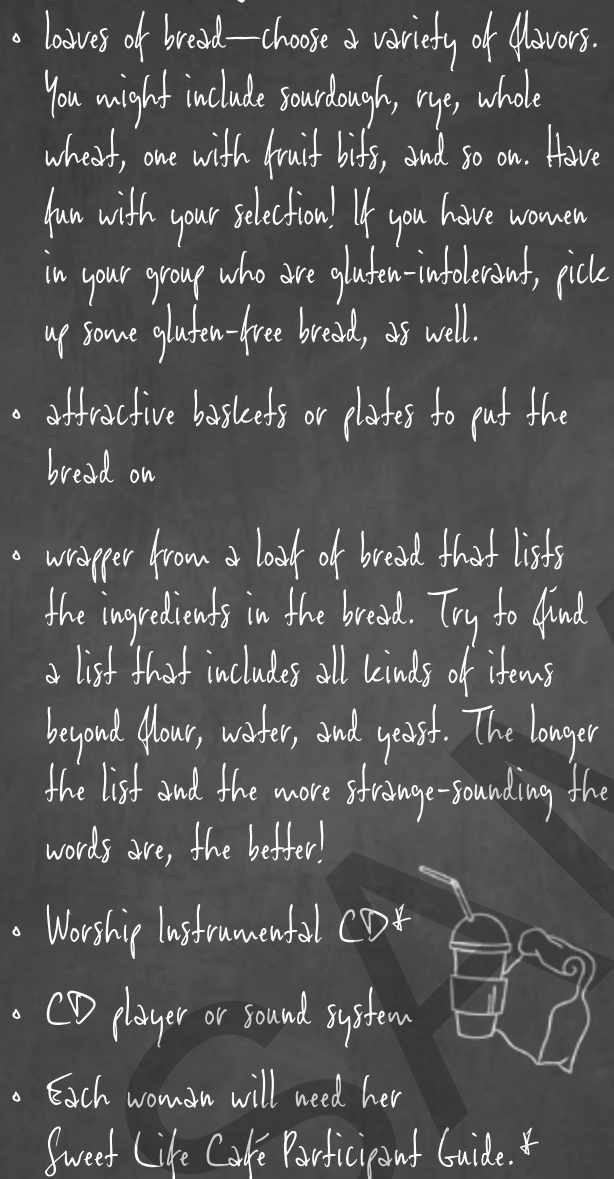 • loaves of bread—choose a variety of flavors.
You might include sourdough, rye, whole
wheat, one with fruit bits, and so on. Have
fun with your selection! If you have women
in your group who are gluten-intolerant, pick
up some gluten-free bread, as well.
• attractive baskets or plates to put the
bread on
• wrapper from a loaf of bread that lists
the ingredients in the bread. Try to find
a list that includes all kinds of items
beyond flour, water, and yeast. The longer
the list and the more strange-sounding the
words are, the better!
• Worship Instrumental CD*
• CD player or sound system
• Each woman will need her
Sweet Life Café Participant Guide.*